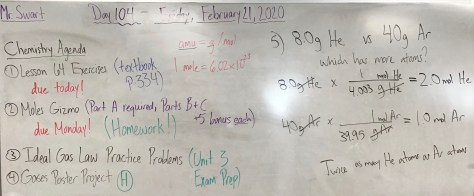 Mr Swart Day 104 - Friday, February 21, 2020
Chemistry Agenda
① Lesson 64 Exercises (textbook
p.334)
due today!
② Moles Gizmo (Part A required, Parts B+C
+5 bonus each)
due Monday! (Homework!)
③ Ideal Gas Law Practice Problems (Unit 3
Exam Prep)
④ Gases Poster Project (H)
amu = g/mol
1 mole = 6.02 × 10²³
5) 8.0g He vs 40g Ar
which has more atoms?
8.0g He × 1 mol He / 4.003 g He = 2.0 mol He
40g Ar × 1 mol Ar / 39.95 g Ar = 1.0 mol Ar
Twice as many He atoms as Ar atoms